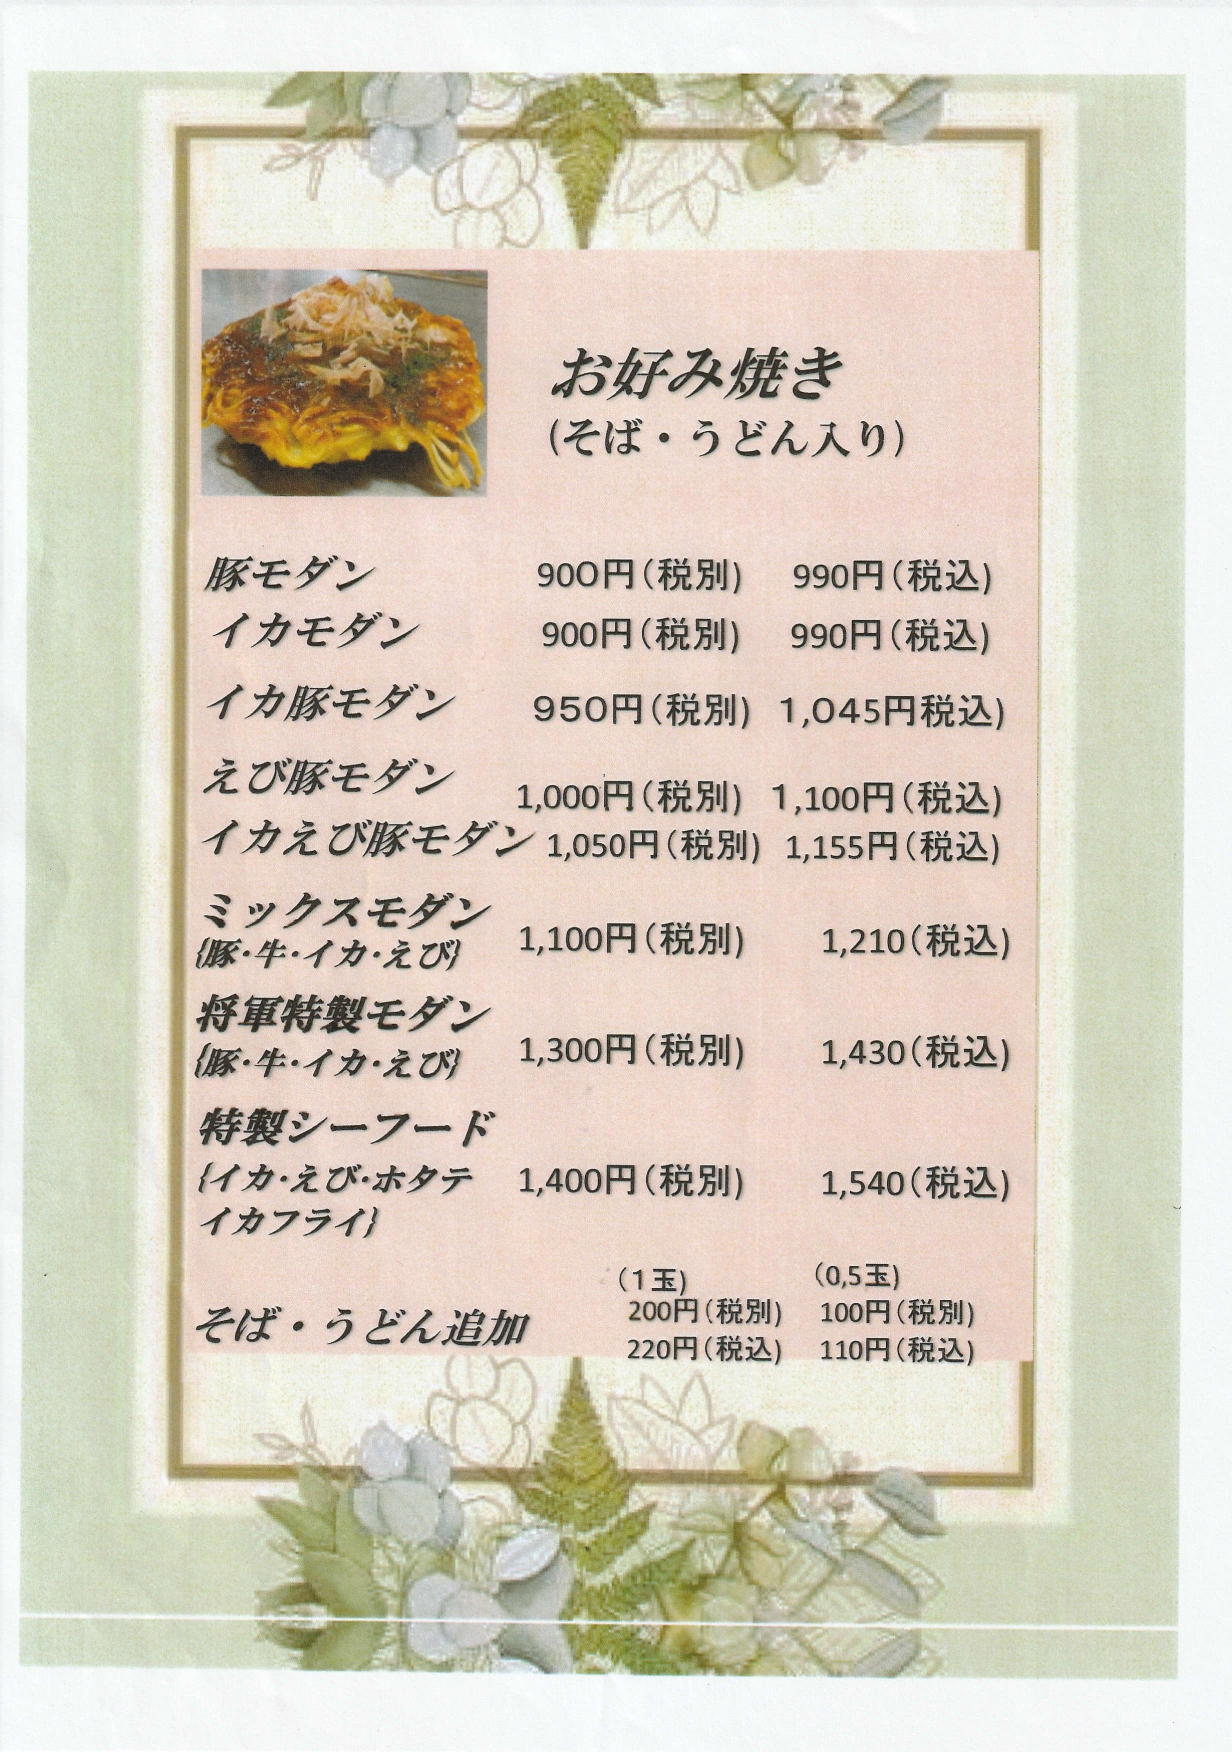 お好み焼き
(そば・うどん入り)
豚モダン 900円(税別) 990円(税込)
イカモダン 900円(税別) 990円(税込)
イカ豚モダン 950円(税別) 1,045円税込)
えび豚モダン 1,000円(税別) 1,100円(税込)
イカえび豚モダン 1,050円(税別) 1,155円(税込)
ミックスモダン
{豚・牛・イカ・えび} 1,100円(税別) 1,210(税込)
将軍特製モダン
{豚・牛・イカ・えび} 1,300円(税別) 1,430(税込)
特製シーフード
{イカ・えび・ホタテ 1,400円(税別) 1,540(税込)
イカフライ}
(1玉) (0,5玉)
200円(税別) 100円(税別)
そば・うどん追加
220円(税込) 110円(税込)